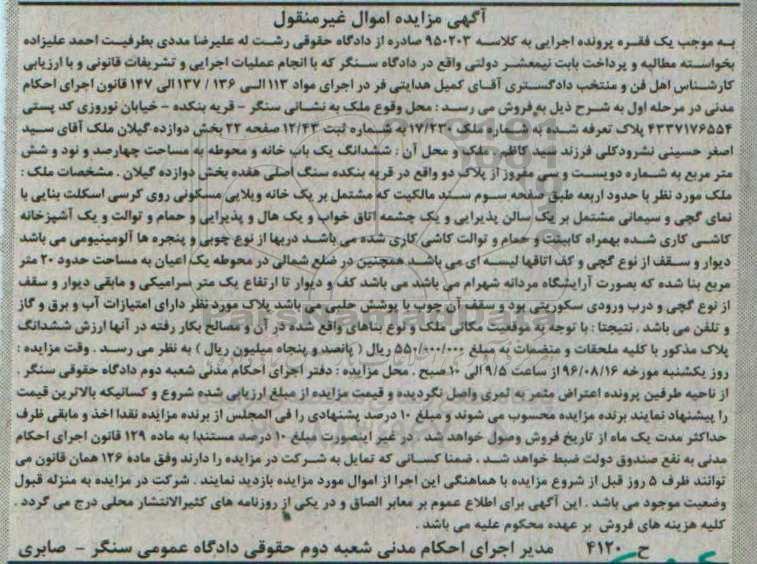 آگهی مزایده اموال غیرمنقول
به موجب یک فقره پرونده اجرایی به کلاسه ۹۵۰۲۰۳ صادره از دادگاه حقوقی رشت له علیرضا مددی بطرفیت احمد علیزاده
بخواسته مطالبه و پرداخت بابت نیمعشر دولتی واقع در دادگاه سنگر که با انجام عملیات اجرایی و تشریفات قانونی و با ارزیابی
کارشناس اهل فن و منتخب دادگستری آقای کمیل هدایتی فر در اجرای مواد ۱۱۳ الی ۱۳۶ / ۱۳۷ الی ۱۴۷ قانون اجرای احکام
مدنی در مرحله اول به شرح ذیل به فروش می رسد : محل وقوع ملک به نشانی سنگر - قریه بنکده - خیابان نوروزی کد پستی
۴۳۳۷۱۷۶۵۵۴ پلاک تعرفه شده به شماره ملک ۱۷/۲۳۰ به شماره ثبت ۱۲/۴۳ صفحه ۲۲ بخش دوازده گیلان ملک آقای سید
اصغر حسینی نشرودکلی فرزند سید کاظم ملک و محل آن : ششدانگ یک باب خانه و محوطه به مساحت چهارصد و نود و شش
متر مربع به شماره دویست و سی مفروز از پلاک دو واقع در قریه بنکده سنگ اصلی هفده بخش دوازده گیلان . مشخصات ملک :
ملک مورد نظر با حدود اربعه طبق صفحه سوم سند مالکیت که مشتمل بر یک خانه ویلایی مسکونی روی کرسی اسکلت بنایی با
نمای گچی و سیمانی مشتمل بر یک سالن پذیرایی و یک چشمه اتاق خواب و یک هال و پذیرایی و حمام و توالت و یک آشپزخانه
کاشی کاری شده بهمراه کابینت و حمام و توالت کاشی کاری شده می باشد دربها از نوع چوبی و پنجره ها آلومینیومی می باشد
دیوار و سقف از نوع گچی و کف اتاقها لیسه ای می باشد همچنین در ضلع شمالی در محوطه یک اعیان به مساحت حدود ۲۰ متر
مربع بنا شده که بصورت آرایشگاه مردانه شهرام می باشد می باشد کف و دیوار تا ارتفاع یک متر سرامیکی و مابقی دیوار و سقف
از نوع گچی و درب ورودی سکوریتی بود و سقف آن چوب با پوشش حلبی می باشد پلاک مورد نظر دارای امتیازات آب و برق و گاز
و تلفن می باشد . نتیجتا : با توجه به موقعیت مکانی ملک و نوع بناهای واقع شده در آن و مصالح بکار رفته در آنها ارزش ششدانگ
پلاک مذکور با کلیه ملحقات و منضمات به مبلغ ۵۵۰/۰۰۰/۰۰۰ ریال ( پانصد و پنجاه میلیون ریال ) به نظر می رسد . وقت مزایده :
روز یکشنبه مورخه ۹۶/۰۸/۱۶ از ساعت ۹/۵ الی ۱۰ صبح . محل مزایده : دفتر اجرای احکام مدنی شعبه دوم دادگاه حقوقی سنگر .
از ناحیه طرفین پرونده اعتراض مثمر به ثمری واصل نگردیده و قیمت مزایده از مبلغ ارزیابی شده شروع و کسانیکه بالاترین قیمت
را پیشنهاد نمایند برنده مزایده محسوب می شوند و مبلغ ۱۰ درصد پیشنهادی را فی المجلس از برنده مزایده نقدا اخذ و مابقی ظرف
حداکثر مدت یک ماه از تاریخ فروش وصول خواهد شد . در غیر اینصورت مبلغ ۱۰ درصد مستندا به ماده ۱۲۹ قانون اجرای احکام
مدنی به نفع صندوق دولت ضبط خواهد شد . ضمنا کسانی که تمایل به شرکت در مزایده را دارند وفق ماده ۱۲۶ همان قانون می
توانند ظرف ۵ روز قبل از شروع مزایده با هماهنگی این اجرا از اموال مورد مزایده بازدید نمایند . شرکت در مزایده به منزله قبول
وضعیت موجود می باشد . این آگهی برای اطلاع عموم بر معابر الصاق و در یکی از روزنامه های کثیرالانتشار محلی درج می گردد .
کلیه هزینه های فروش بر عهده محکوم علیه می باشد .
ح ۴۱۲۰ مدیر اجرای احکام مدنی شعبه دوم حقوقی دادگاه عمومی سنگر - صابری